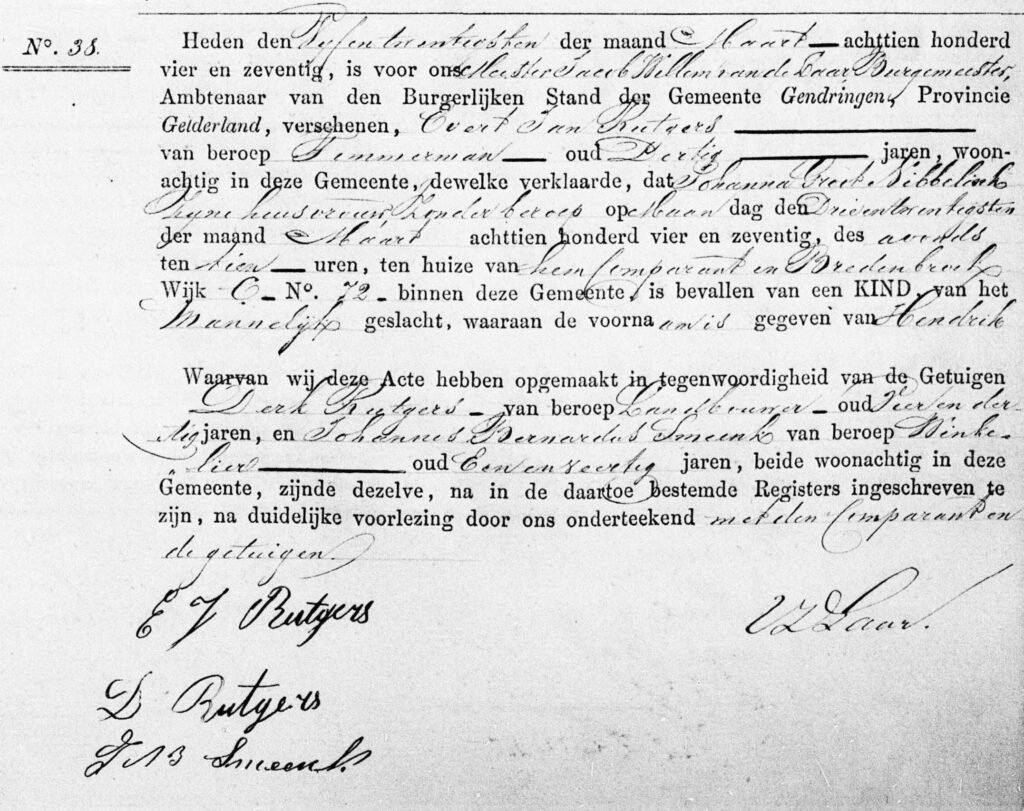 Nº. 38.
Heden den Vyfentwentigsten der maand Maart achttien honderd
vier en zeventig, is voor ons Meester Jacob Willem van de Laar, Burgemeester,
Ambtenaar van den Burgerlijken Stand der Gemeente Gendringen, Provincie
Gelderland, verschenen, Evert Jan Rutgers
van beroep Timmerman oud Dertig jaren, woon-
achtig in deze Gemeente, dewelke verklaarde, dat Johanna Groot Nibbelink
Zyne huisvrouw, Zonder beroep op Maan dag den Drieentwentigsten
der maand Maart achttien honderd vier en zeventig, des avonds
ten tien uren, ten huize van hem Comparant in Bredenbroek
Wijk C Nº. 72 binnen deze Gemeente, is bevallen van een KIND, van het
Mannelijk geslacht, waaraan de voornaam is gegeven van Hendrik
Waarvan wij deze Acte hebben opgemaakt in tegenwoordigheid van de Getuigen
Derk Rutgers van beroep Landbouwer oud Vier en der-
tig jaren, en Johannes Bernardus Smeenk van beroep Winke-
"lier oud Een en veertig jaren, beide woonachtig in deze
Gemeente, zijnde dezelve, na in de daartoe bestemde Registers ingeschreven te
zijn, na duidelijke voorlezing door ons onderteekend met den Comparant en
de getuigen.
E J Rutgers
VD Laar.
D Rutgers
J B Smeenk